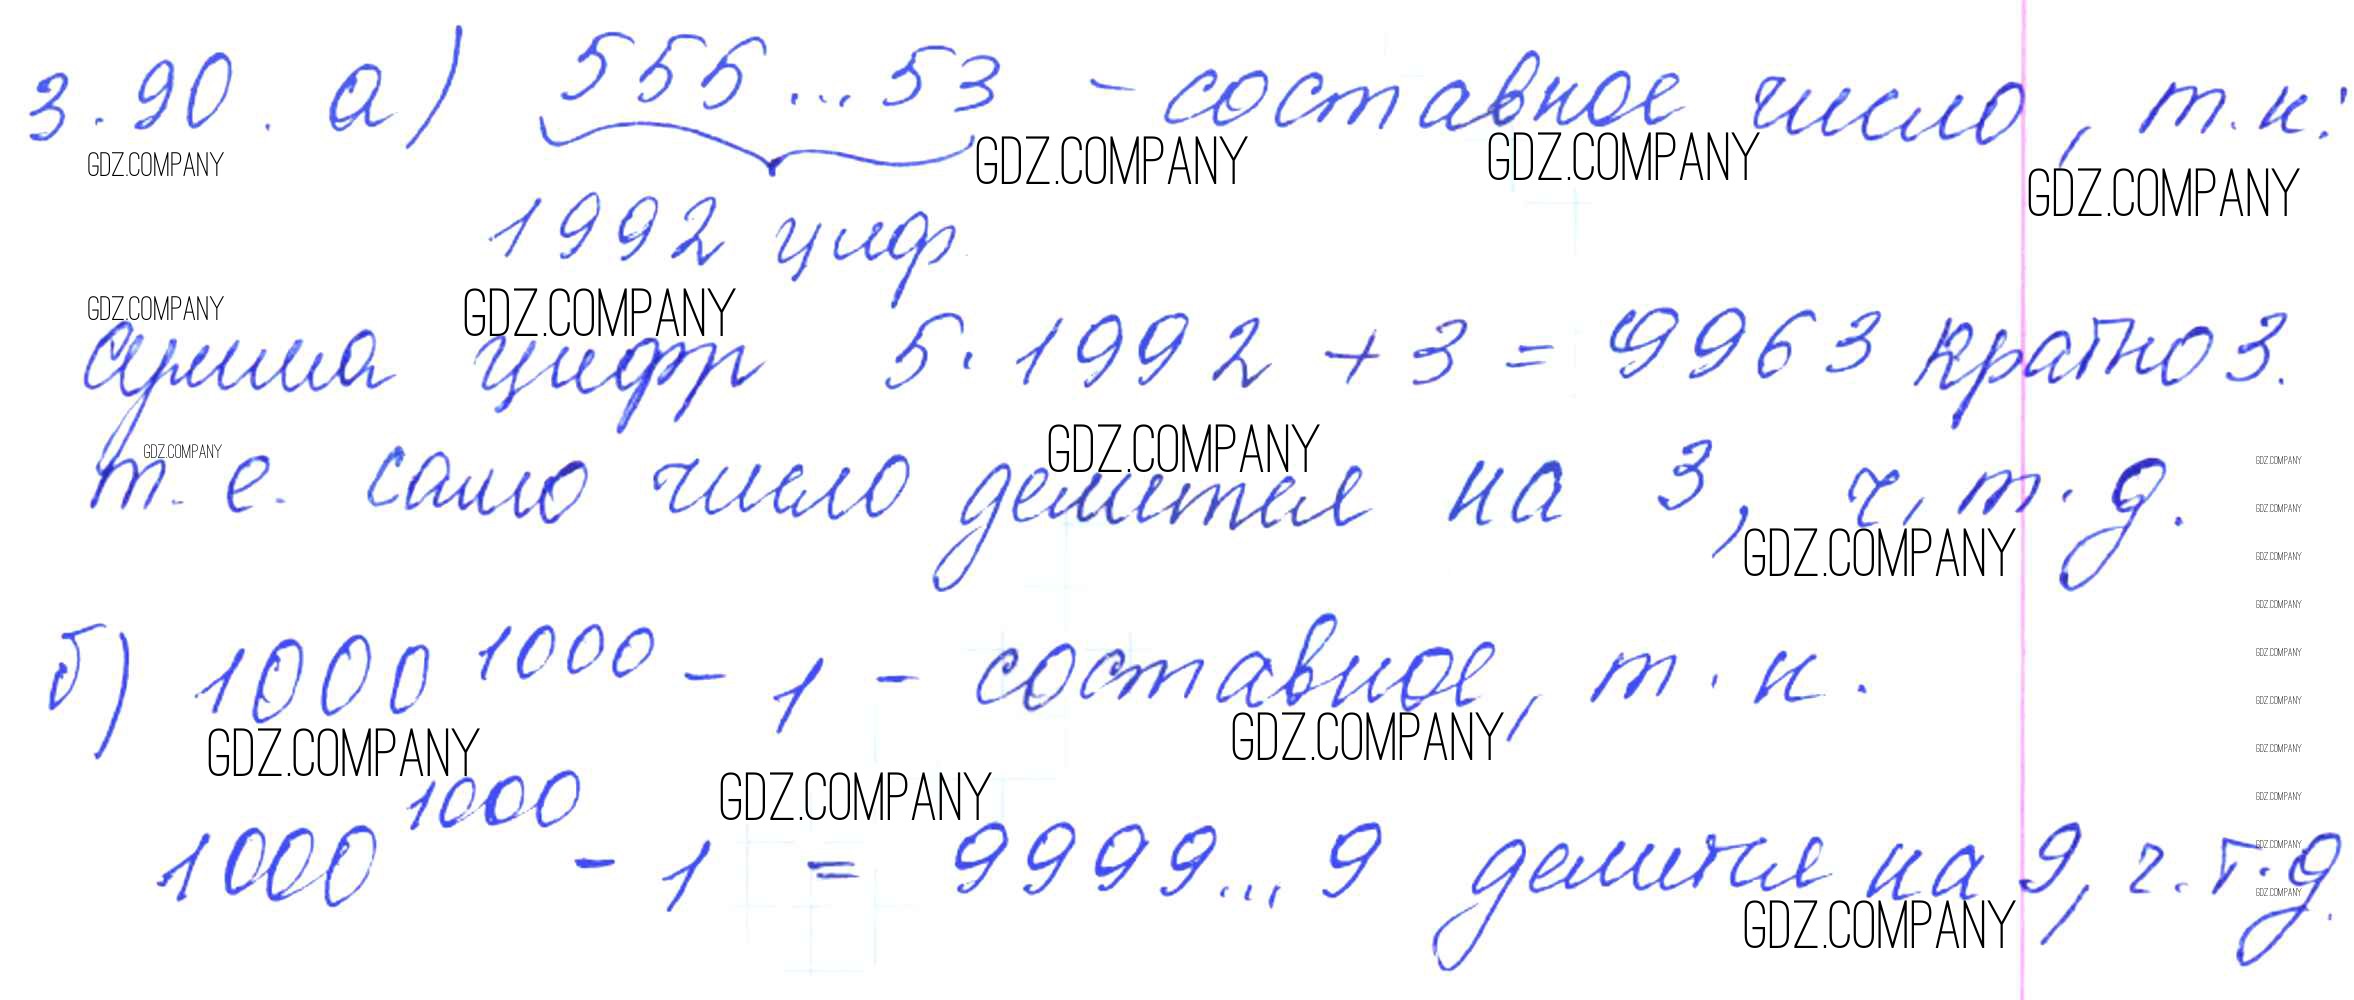 3.90. а) 555...53 - составное число, т.к:
GDZ.COMPANY GDZ.COMPANY GDZ.COMPANY GDZ.COMPANY
1992 циф.
GDZ.COMPANY GDZ.COMPANY
сумма цифр 5·1992+3=9963 кратно 3.
GDZ.COMPANY GDZ.COMPANY GDZ.COMPANY
т.е. само число делится на 3, ч.т.д.
GDZ.COMPANY
GDZ.COMPANY GDZ.COMPANY
GDZ.COMPANY
б) 1000^1000 - 1 - составное, т.к.
GDZ.COMPANY
GDZ.COMPANY
GDZ.COMPANY GDZ.COMPANY GDZ.COMPANY
GDZ.COMPANY GDZ.COMPANY
1000^1000 - 1 = 9999...9 делится на 9, ч.т.д.
GDZ.COMPANY
GDZ.COMPANY GDZ.COMPANY